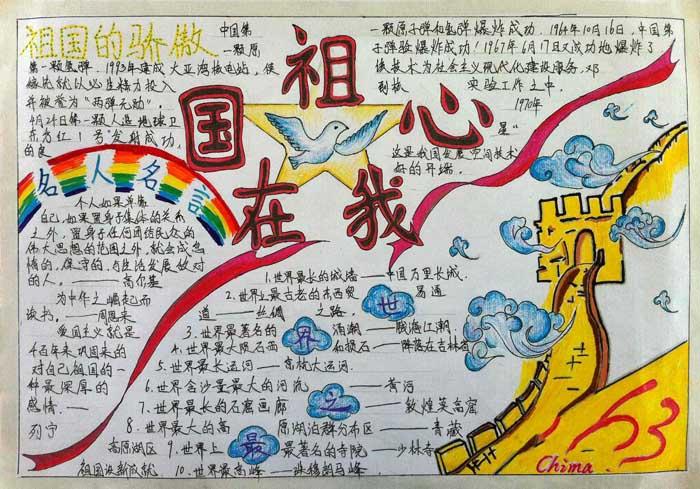 祖国的骄傲
中国第
一颗原
第一颗氢弹. 1993年建成大亚湾核电站,
就以必生精力投入
并被誉为“两弹元勋”.
4月24日第一颗人造地球卫
东方红1号“发射成功,
的良
一颗原子弹和氢弹爆炸成功. 1964年10月16日,中国第
子弹验爆炸成功!1967年6月17日又成功地爆炸了
技术为社会主义现代化建设服务.邓
实验工作之中.
1970年
星“
这是我国发展空间技术
好的开端.
祖
国
心
在
我
名人名言
个人如果单靠
自己,如果置身于集体的关系
之外,置身于任何团结民众的
伟大思想的范围之外,就会成怠
惰的,保守的,与生活发展敌对
的人.——高尔基
为中华之崛起而
读书.——周恩来
爱国主义就是
千百年来巩固来的
对自己祖国的一
种最深厚的
感情.——
列宁
世界之最
1.世界最长的城墙——中国万里长城.
2.世界上最古老的东西贸易通
道——丝绸之路.
3.世界最著名的涌潮——钱塘江潮.
4.世界最大陨石雨和陨石——降落在吉林省
5.世界最长运河——京杭大运河.
6.世界含沙量最大的河流——黄河
7.世界最长的石窟画廊——敦煌莫高窟
8.世界最大的高原湖泊群分布区——青藏
高原湖区
9.世界上最著名的寺院——少林寺
祖国设新成就
10.世界最高峰——珠穆朗玛峰.
63
Chima